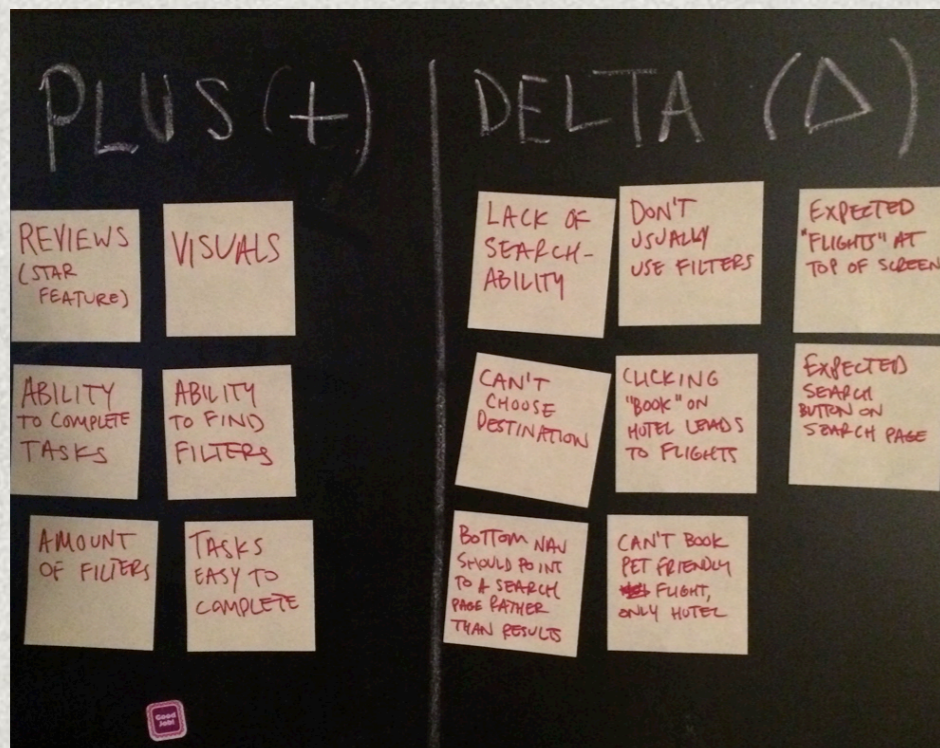 PLUS (+)
DELTA (Δ)
REVIEWS
(STAR
FEATURE)
VISUALS
ABILITY
TO COMPLETE
TASKS
ABILITY
TO FIND
FILTERS
AMOUNT
OF FILTERS
TASKS
EASY TO
COMPLETE
Good
Job!
LACK OF
SEARCH-
ABILITY
DON'T
USUALLY
USE FILTERS
EXPECTED
"FLIGHTS" AT
TOP OF SCREEN
CAN'T
CHOOSE
DESTINATION
CLICKING
"BOOK" ON
HOTEL LEADS
TO FLIGHTS
EXPECTED
SEARCH
BUTTON ON
SEARCH PAGE
BOTTOM NAV
SHOULD POINT
TO A SEARCH
PAGE RATHER
THAN RESULTS
CAN'T BOOK
PET FRIENDLY
FLIGHT,
ONLY HOTEL